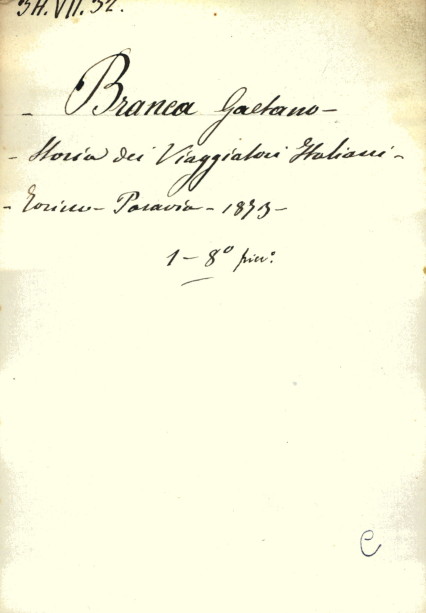 34.VII.32.
- Branca Gaetano -
- Storia dei Viaggiatori Italiani -
- Torino - Paravia - 1873 -
1 - 8º picc.º
C